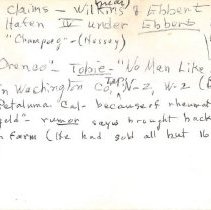 (near)
claims - Wilkins & Ebbert
Hafen IV under Ebbert
"Champoeg" - (Hussey)
Orenco" - Tobie - "No Man Like
in Washington Co, T2P, N-2, W-2
Petaluma Cal - because of rheumat
gold" - rumor says brought back
n farm (He had sold all but 160